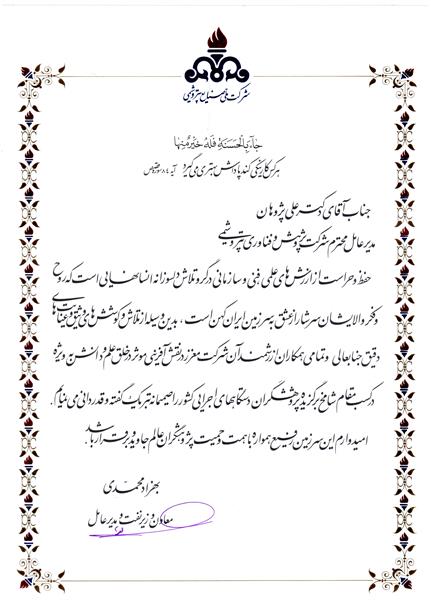 شرکت ملی صنایع پتروشیمی
جاء بالحسنة فله خیر منها
هر کس کار نیکی کند پاداش بهتری می گیرد آیه ۸۴ سوره قصص
جناب آقای دکتر علی پژوهان
مدیر عامل محترم شرکت پژوهش و فناوری پتروشیمی
حفظ و حراست از ارزش های علمی، فنی و سازمانی در گرو تلاش دلسوزانه انسانهایی است که روح
و فکر والایشان سرشار از عشق به سرزمین ایران کهن است، بدین وسیله از تلاش و کوشش های
دقیق جنابعالی و تمامی همکاران ارزشمند آن شرکت معزز در نقش آفرینی موثر در خلق علم و دانش به ویژه
در کسب مقام شامخ برگزیده پژوهشگران دستگاههای اجرایی کشور را صمیمانه تبریک گفته و قدردانی می نمایم.
امیدوارم این سرزمین رفیع همواره با همت و حمیت پژوهشگران عالم جاوید و برقرار باشد.
بهزاد محمدی
معاون وزیر نفت و مدیر عامل